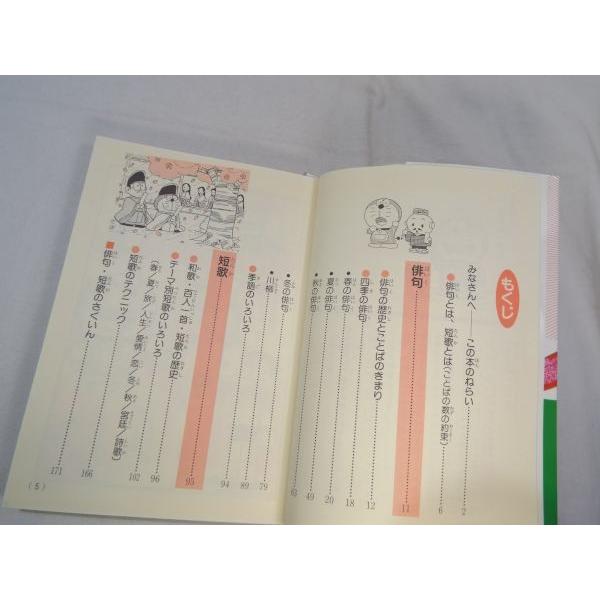 もくじ
みなさんへ——この本のねらい 2
●俳句とは、短歌とは（ことばの数の約束） 6
俳句 11
●俳句の歴史とことばのきまり 12
●四季の俳句 18
・春の俳句 20
・夏の俳句 49
・秋の俳句 63
・冬の俳句 79
・川柳 89
●季語のいろいろ 94
短歌 95
●和歌・百人一首・短歌の歴史 96
●テーマ別短歌のいろいろ 102
（春／夏／旅／人生／愛情／恋／冬／秋／宮廷／詩歌）
●短歌のテクニック 166
■俳句・短歌のさくいん 171
（5）